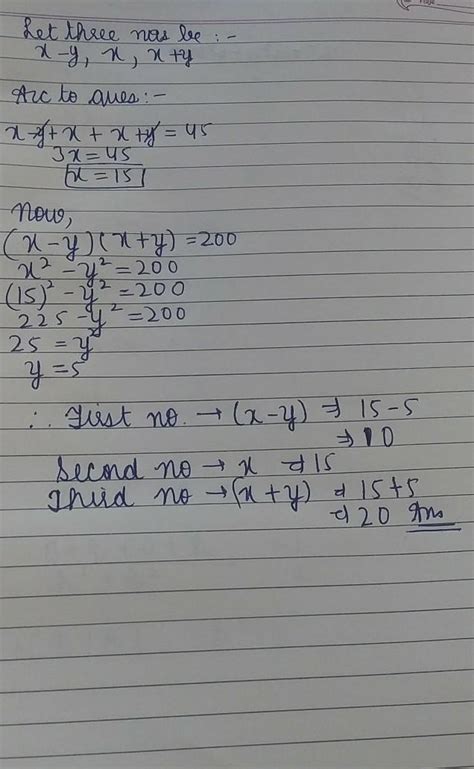 Let three nos be :-
x-y, x, x+y
Arc to ques :-
x-y+x+x+y = 45
3x = 45
x = 15
Now,
(x-y)(x+y) = 200
x² - y² = 200
(15)² - y² = 200
225 - y² = 200
25 = y²
y = 5
∴ First no. → (x-y) ⇒ 15-5
⇒ 10
Second no → x ⇒ 15
Third no → (x+y) ⇒ 15+5
⇒ 20 Ans